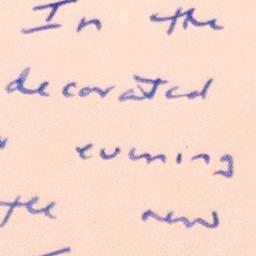 In the
decorated
evening
the new